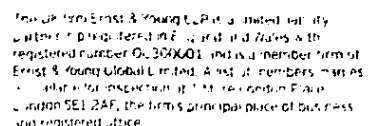 The UK firm Ernst & Young LLP is a limited liability
partnership registered in England and Wales with
registered number OC300001 and is a member firm of
Ernst & Young Global Limited. A list of members' names
is available for inspection at 1 More London Place,
London SE1 2AF, the firm's principal place of business
and registered office.